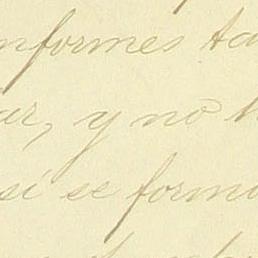 nformes ta
ar, y no h
si se forma